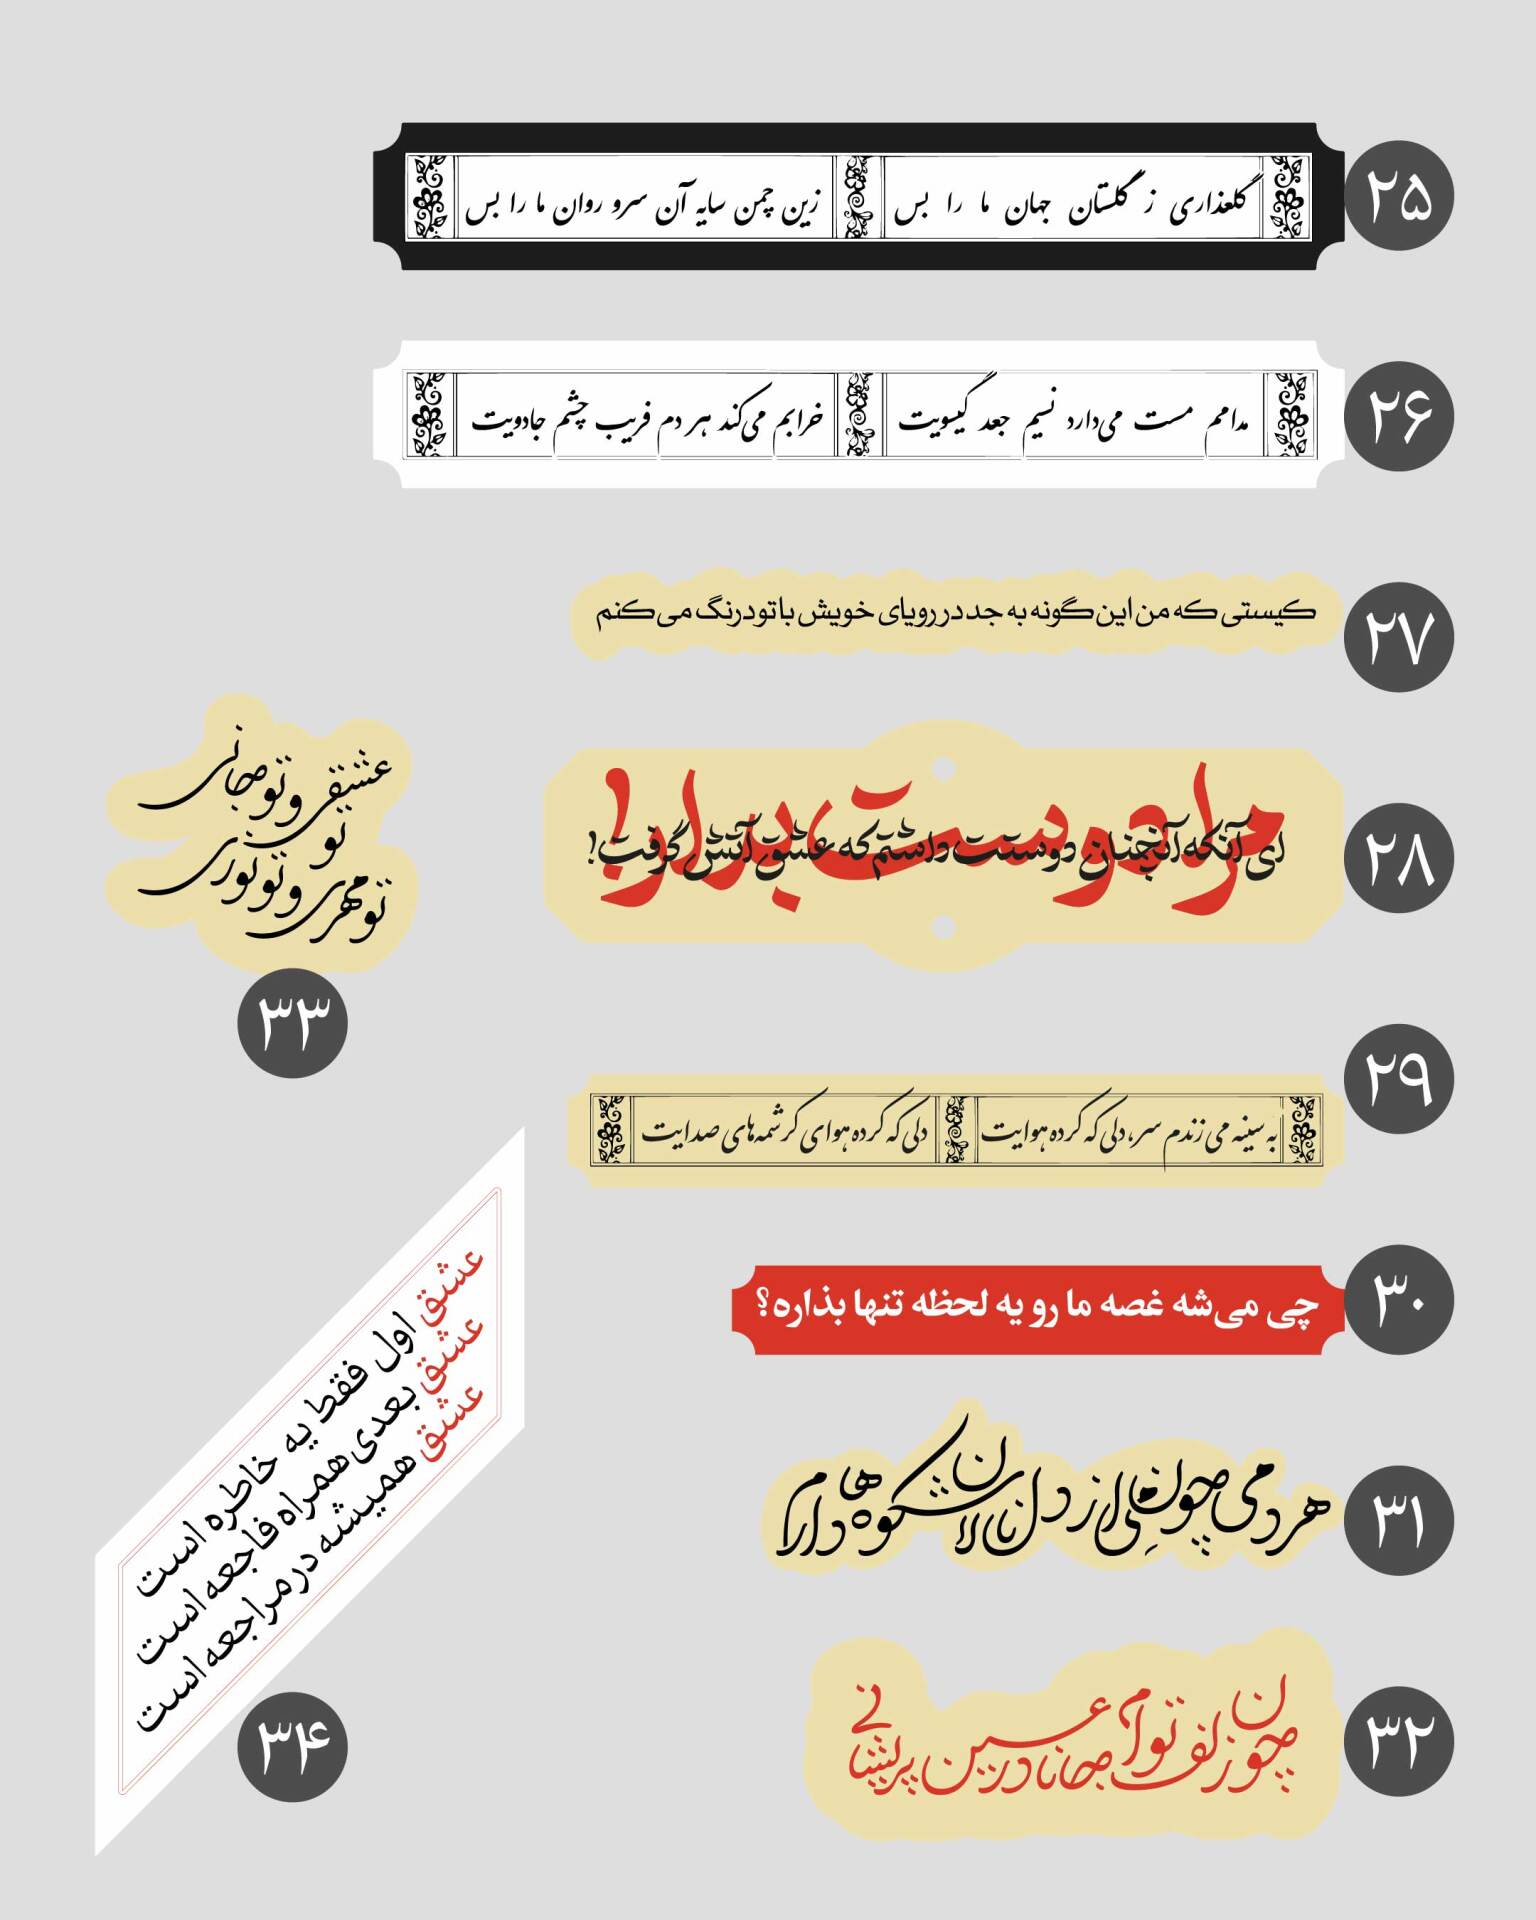 ۲۵
گلعذاری ز گلستان جهان ما را بس
زین چمن سایه آن سرو روان ما را بس
۲۶
مدامم مست می‌دارد نسیم جعد گیسویت
خرابم می‌کند هر دم فریب چشم جادویت
۲۷
کیستی که من این گونه به جد در رویای خویش با تو درنگ می‌کنم
۲۸
مرا دوست بدار!
ای آنکه آنچنان دوستت داشتم که عشق آتش گرفت!
۲۹
به سینه می زندم سر، دلی که کرده هوایت
دلی که کرده هوای کرشمه‌های صدایت
۳۰
چی می‌شه غصه ما رو یه لحظه تنها بذاره؟
۳۱
هر دمی چون نی از دل نالان شکوه‌ها دارم
۳۲
چون زلف توام جانا در عین پریشانی
۳۳
تو عشقی و تو جانی
تو مهری و تو نوری
۳۴
عشق اول فقط یه خاطره است
عشق بعدی همراه فاجعه است
عشق همیشه در مراجعه است